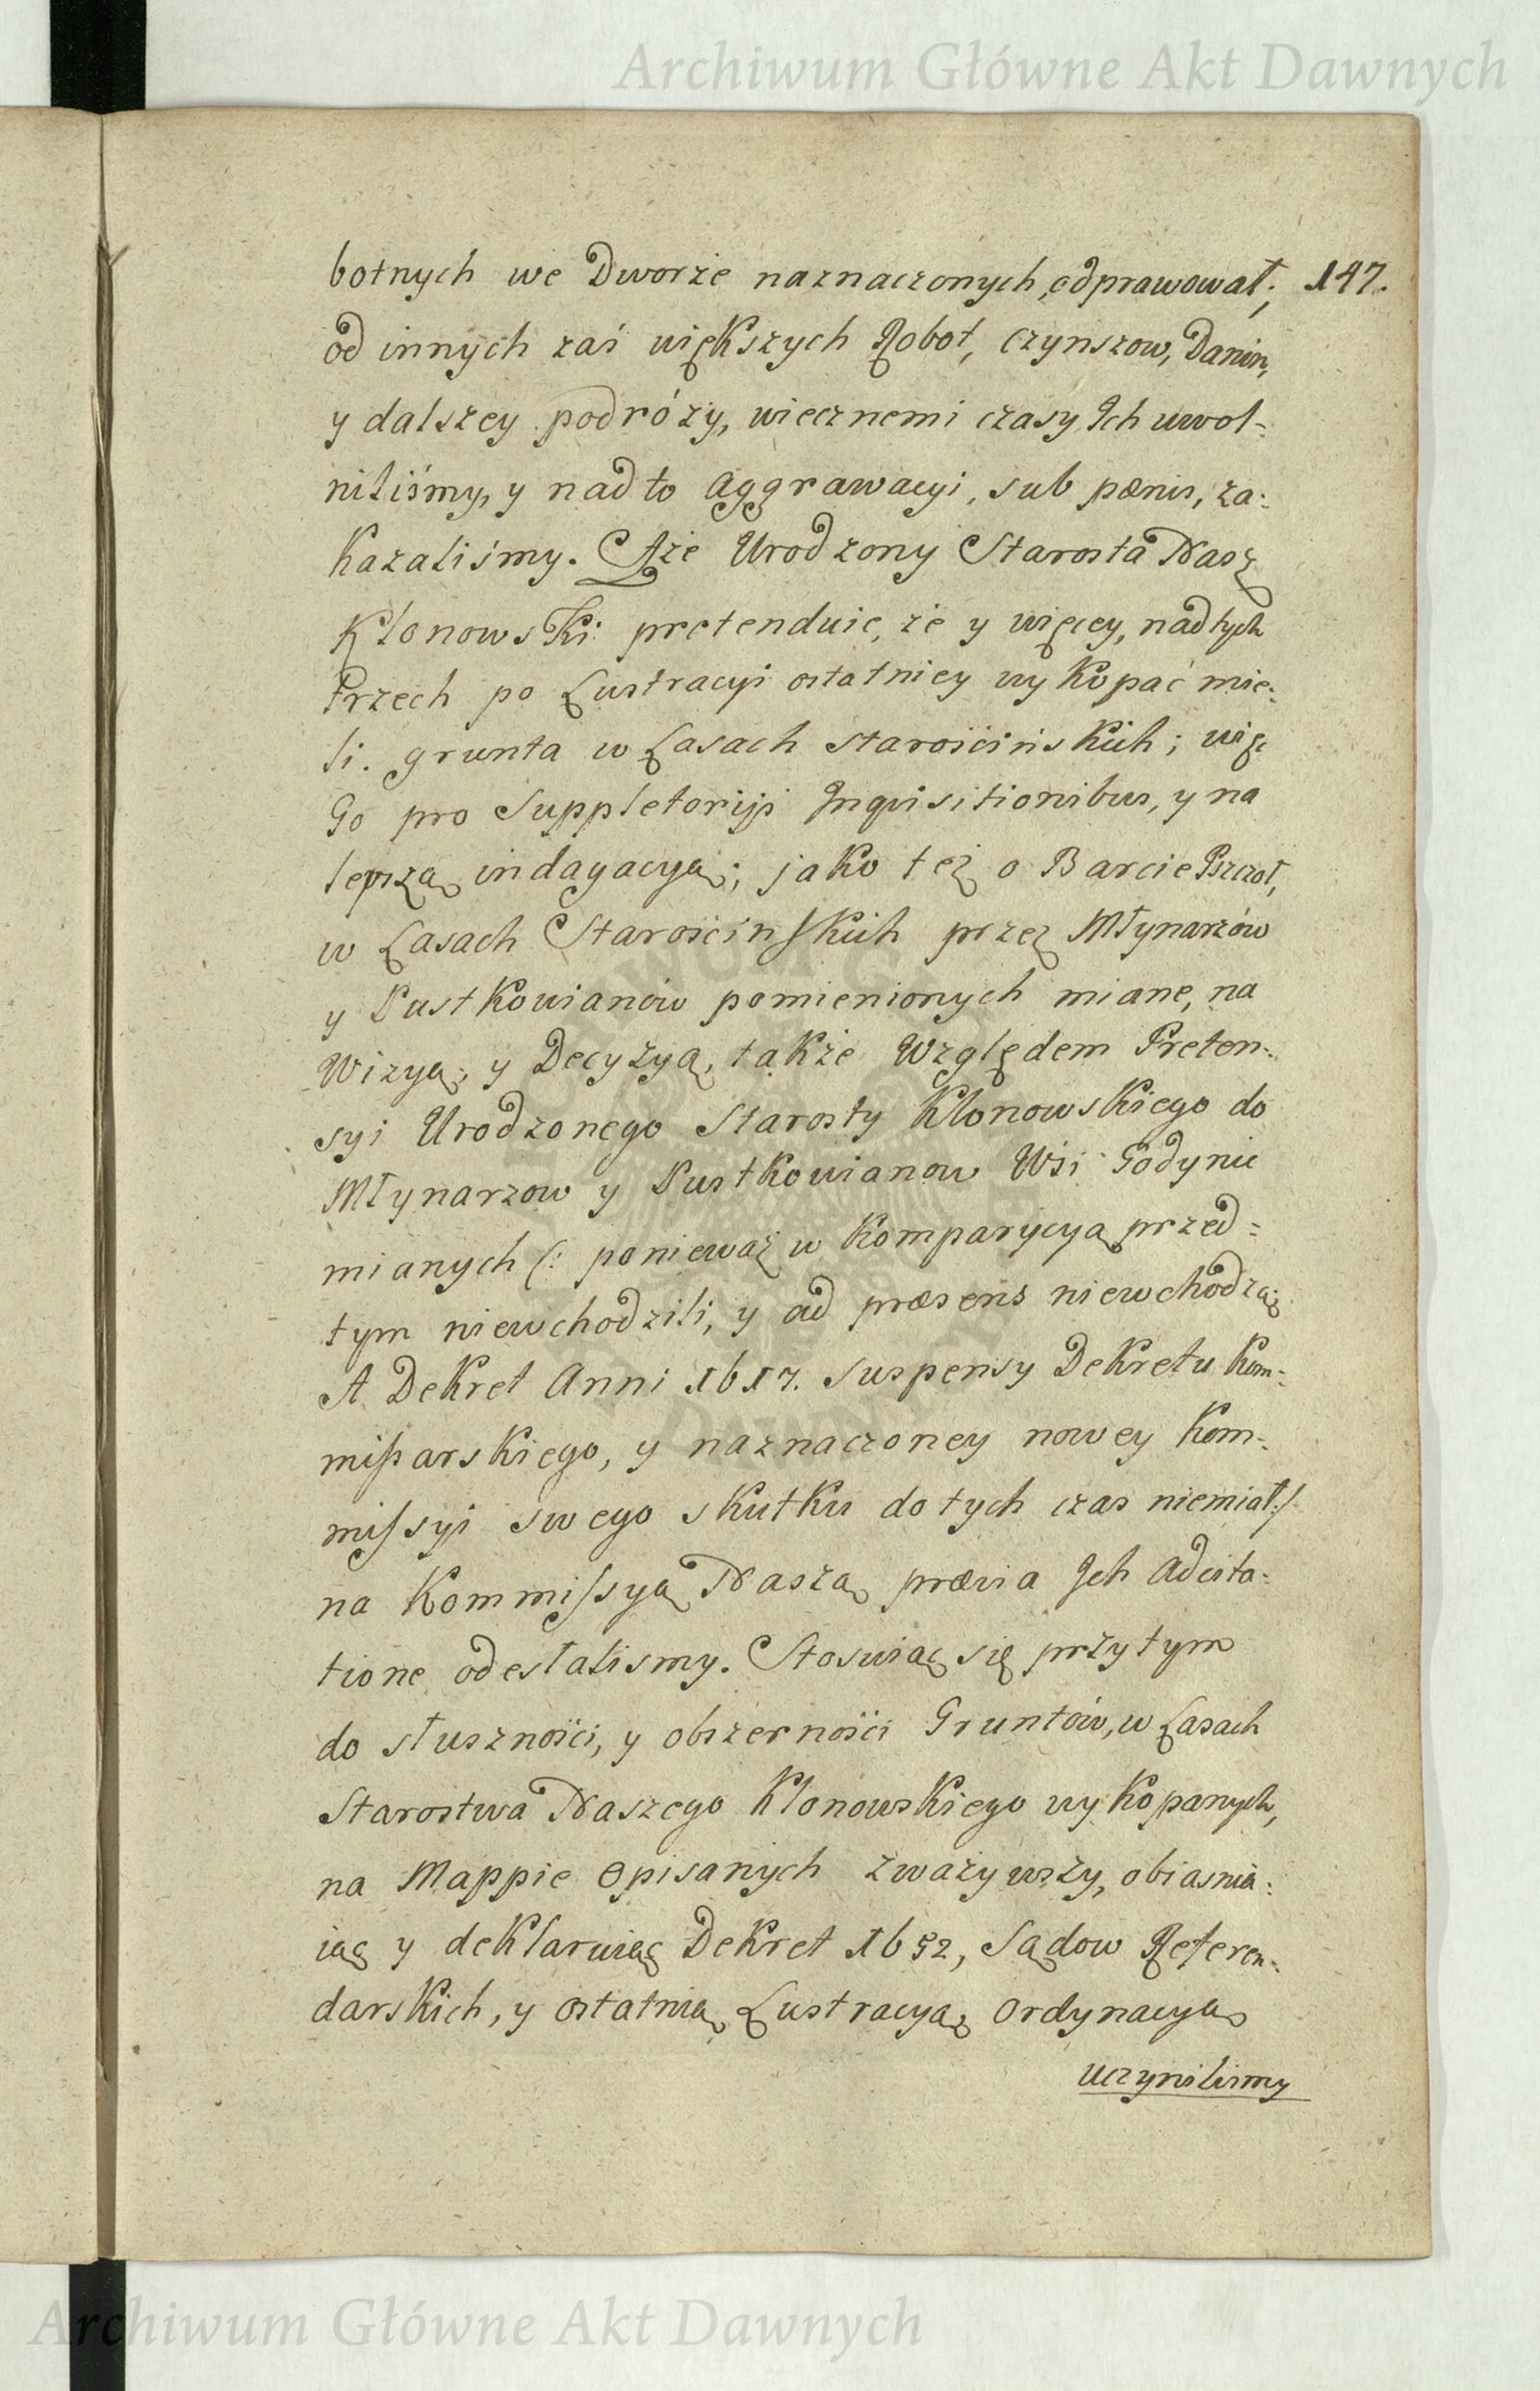 Archiwum Główne Akt Dawnych
botnych we Dworze naznaczonych odprawował; 147.
od innych zaś większych Robot, czynszow, Danin,
y dalszey podróży, wiecznemi czasy Ich uwol=
niliśmy, y nad to Aggrawacyi, sub pœnis, za=
kazaliśmy. Aże Urodzony Starosta Nasz
Klonowski pretenduie, że y więcey, nad tych
trzech po Lustracyi ostatniey wykopać mie=
li. grunta w Lasach starościńskich; więc
Go pro Suppletoriji Inqvisitionibus, y na
lepszą indagacyą; jako też o Barcie Pszczoł,
w Lasach Starościnskich przez Młynarzów
y Pustkowianów pomienionych miane, na
Wizyą, y Decyzyą, także Względem Preten=
syi Urodzonego Starosty Klonowskiego do
Młynarzow y Pustkowianow Wsi Godynic
mianych (: ponieważ w Komparycyą przed=
tym niewchodzili, y ad præsens niewchodzą;
A Dekret Anni 1617. Suspensy Dekretu Kom=
mißarskiego, y naznaczoney nowey Kom=
missyi swego skutku do tych czas niemiał:/
na Kommissyą Naszą prævia Ich Adcita=
tione odesłalismy. Stosuiąc się przytym
do słuszności, y obszerności Gruntów, w Lasach
Starostwa Naszego Klonowskiego wykopanych,
na Mappie Opisanych zważywszy, obiasnia=
iąc y deklaruiąc Dekret 1652, Sądow Referen=
darskich, y ostatnią Lustracyą, Ordynacyą
uczynilismy
Archiwum Główne Akt Dawnych